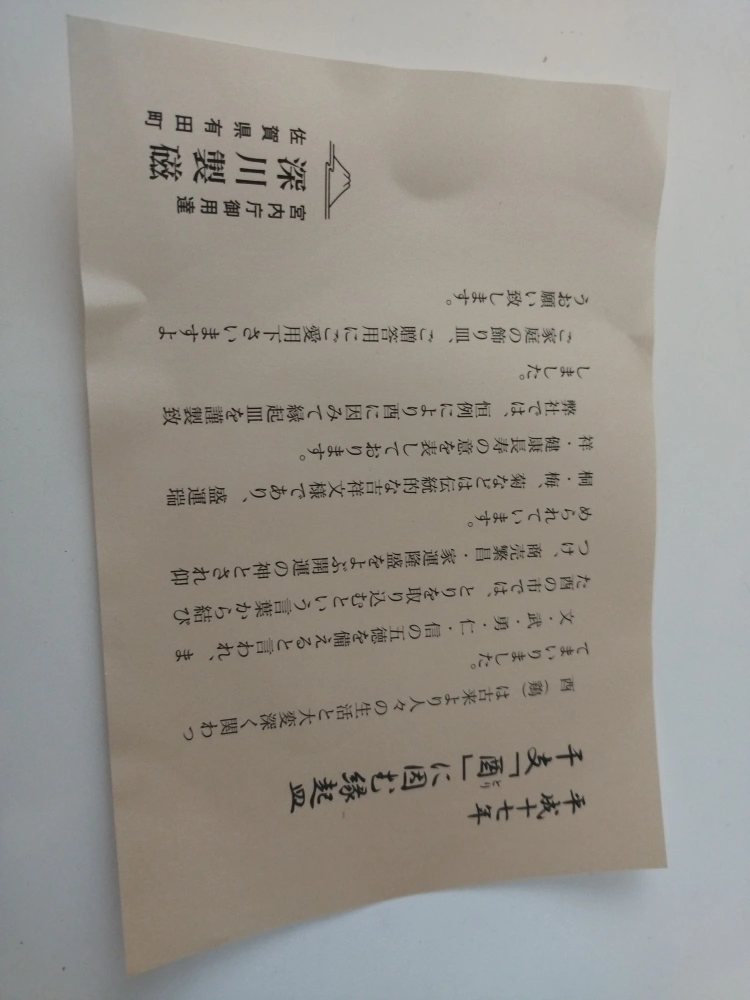 平成十七年
干支「酉」に因む縁起皿
とり
酉（鶏）は古来より人々の生活と大変深く関わっ
てまいりました。
文・武・勇・仁・信の五徳を備えると言われ、ま
た酉の市では、とりを取り込むという言葉から結び
つけ、商売繁昌・家運隆盛をよぶ開運の神とされ仰
められています。
桐・梅、菊などは伝統的な吉祥文様であり、盛運瑞
祥・健康長寿の意を表しております。
弊社では、恒例により酉に因みて縁起皿を謹製致
しました。
ご家庭の飾り皿、ご贈答用にご愛用下さいますよ
うお願い致します。
宮内庁御用達
深川製磁
佐賀県有田町